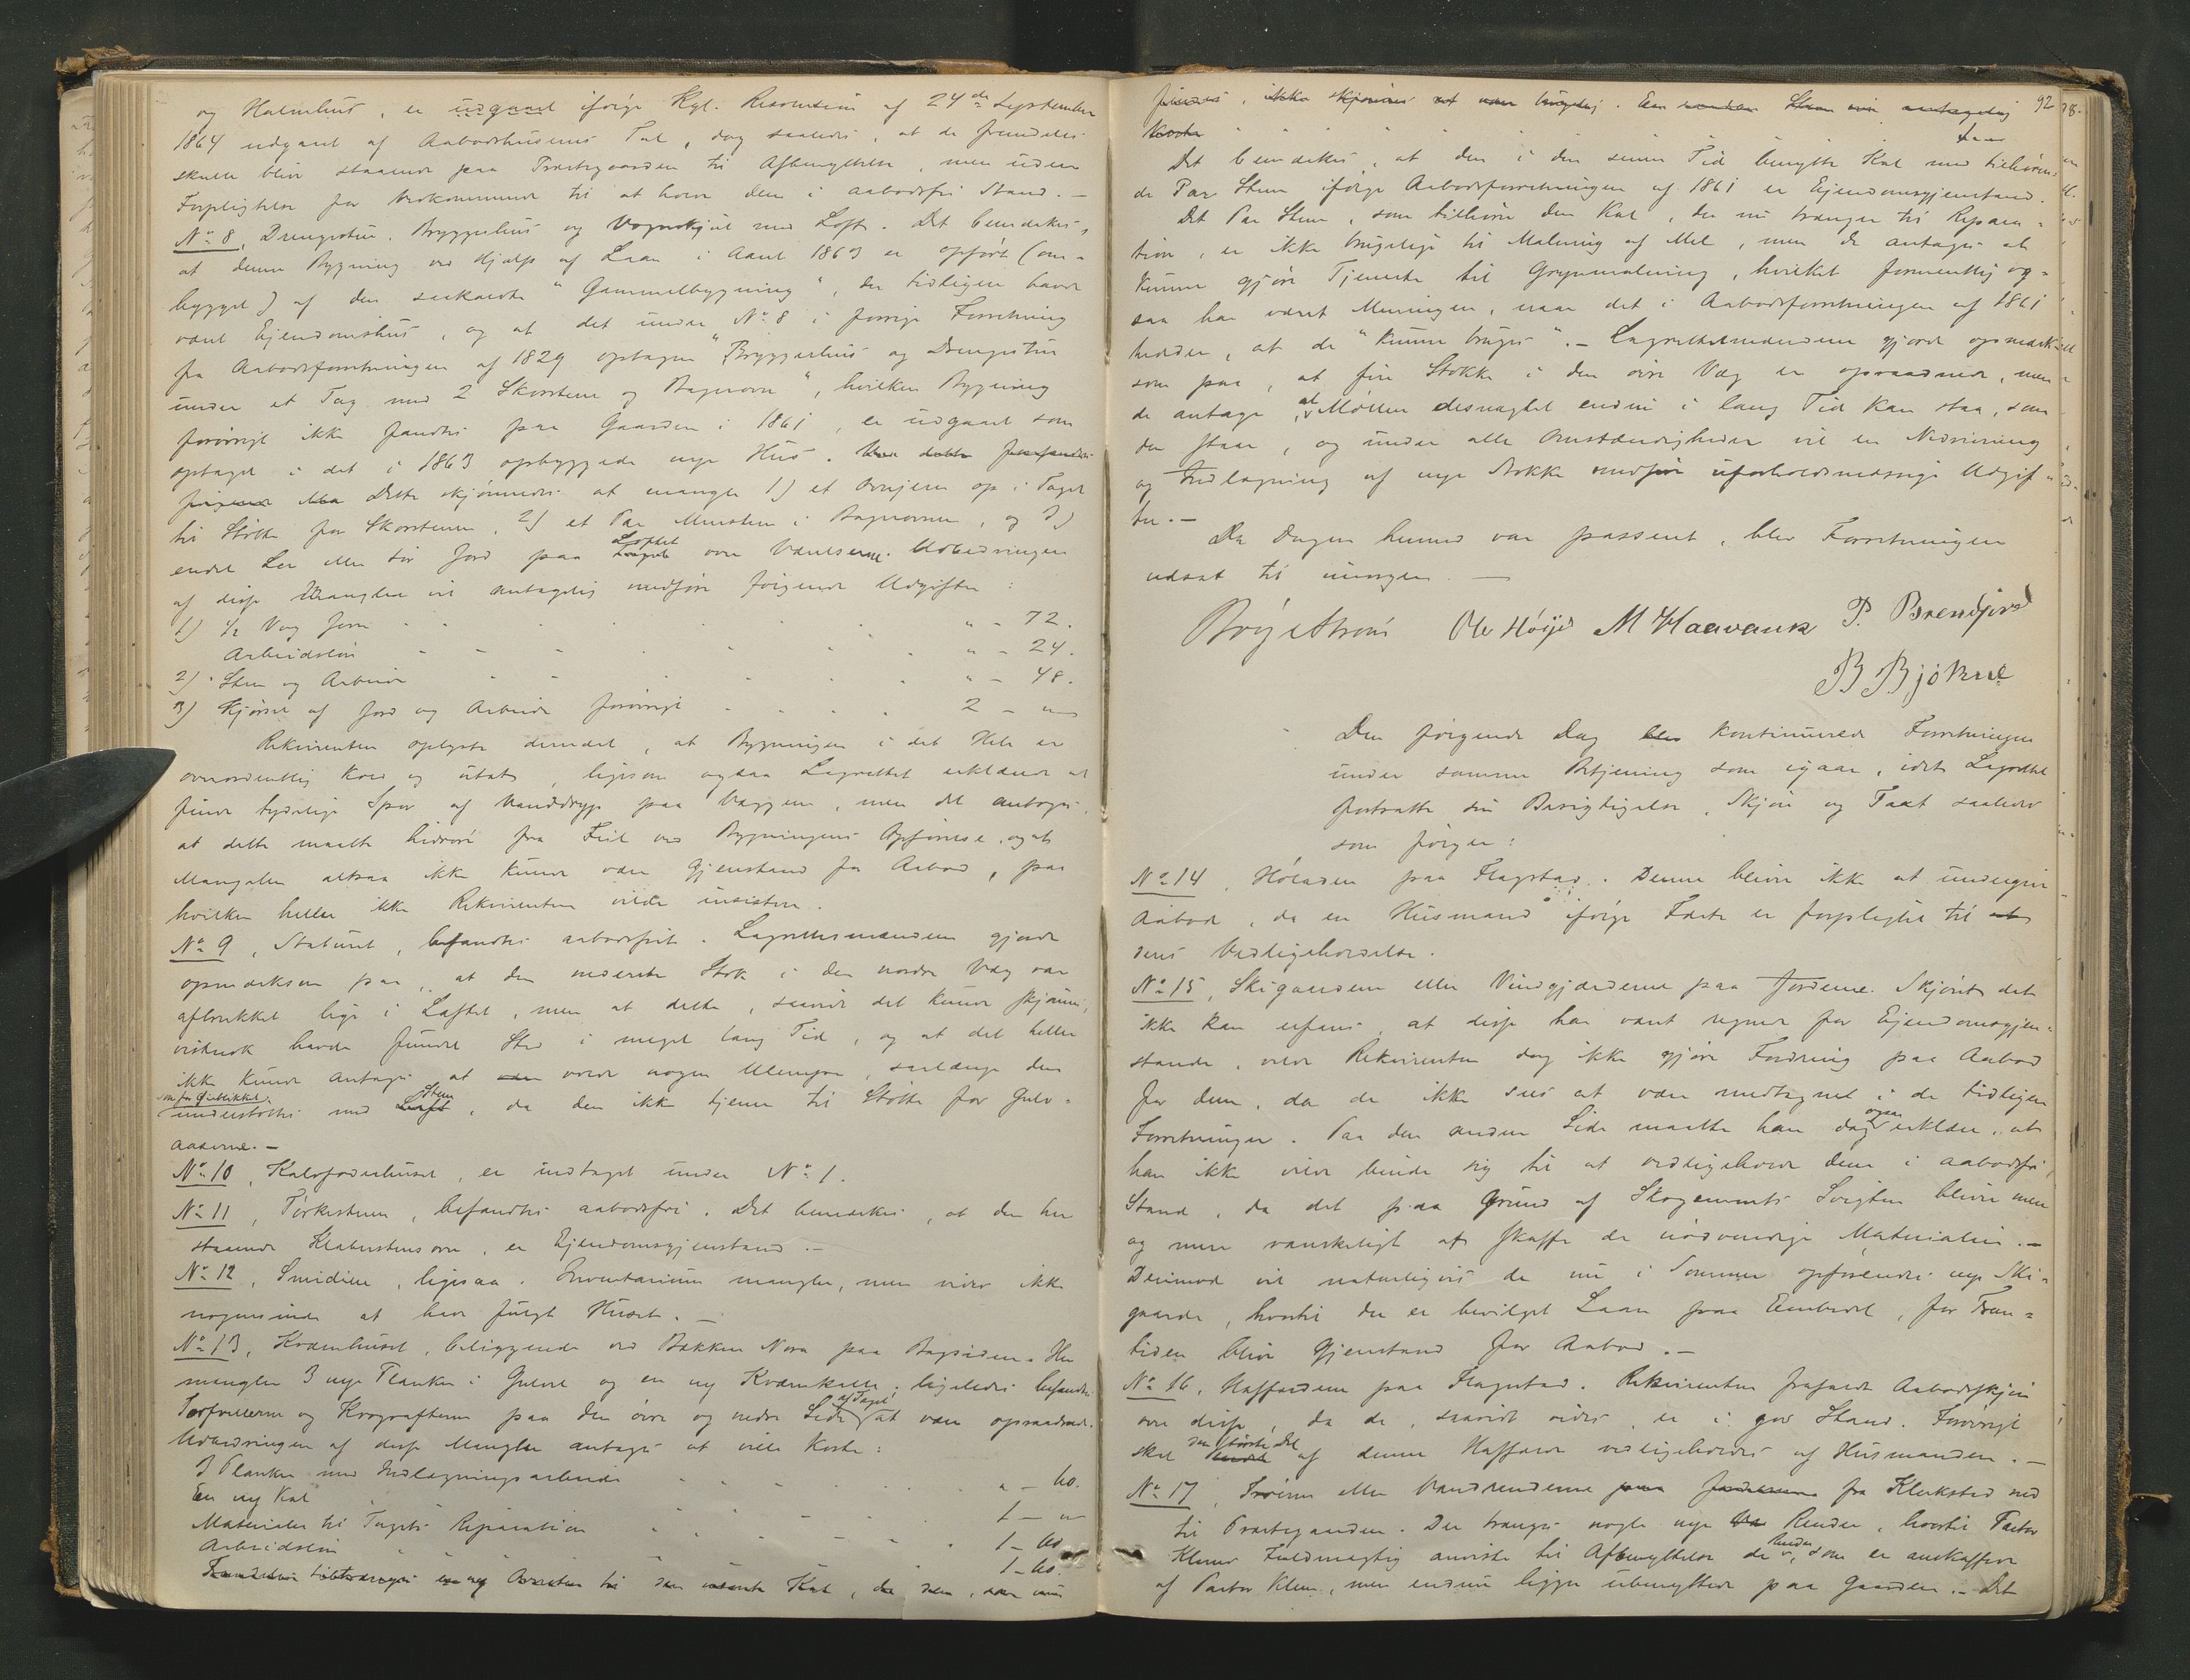 og Halmhus, er udgaaet ifølge Kgl. Resolution af 24de September
1864 udgaaet af Aabodshusenes Tal, dog saaledes, at de fremdeles
skulle blive staaende paa Præstegaarden til Afbenyttelse, men uden
Forpligtelse for Vedkommende til at holde dem i aabodsfri Stand.—
No. 8, Drengestue, Bryggerhus og Vognskjul med Loft. Det bemærkes,
at denne Bygning ved Hjælp af Laan i Aaret 1863 er opført (om-
bygget) af den saakaldte "Gammelbygning", der tidligere havde
været Ejendomshus, og at det under No. 8 i forrige Forretning
fra Aabodsforretningen af 1829 optagne "Bryggerhus og Drengestue
under et Tag med 2 Skorstene og Bagerovn", hvilken Bygning
forøvrigt ikke fandtes paa Gaarden i 1861, er udgaaet som
optaget i det i 1863 opbyggede nye Hus. Ved dette
Dette skjønnedes at mangle 1) et Ovnjern op i Taget
til Støtte for Skorstenen, 2) et Par Mursten i Bagerovnen, og 3)
endel Ler eller tør Jord paa Loftet over Værelserne. Udbedringen
af disse Mangler vil antagelig medføre følgende Udgifter:
1) ½ Vog Jern " - 72.
Arbeidsløn " - 24.
2) Sten og Arbeide " - 48.
3) Kjørsel af Jord og Arbeide forøvrigt 2 - "
Rekvirenten oplyste derhos, at Bygningen i det Hele er
overordentlig kold og utæt, ligesom ogsaa Lagrettet erklærede at
finde tydelige Spor af Vanddryp paa Væggene, men det antoges
at dette maatte hidrøre fra Feil ved Bygningens Opførelse, og at
Mangelen altsaa ikke kunde være Gjenstand for Aabod, paa
hvilken heller ikke Rekvirenten vilde insistere.
No. 9, Staburet, befandtes aabodsfrit. Lagrettesmændene gjorde
opmærksom paa, at den nederste Stok i den nordre Væg var
afbrækket lige i Laftet, men at dette, saavidt det kunde skjønnes,
havde fundet Sted i meget lang Tid, og at det heller
ikke kunde antages at være nogen Ulempe, saalænge den
som for Øieblikket
understøttes med Sten, da den ikke tjener til Støtte for Gulv-
aaserne.—
No. 10, Kalvefoderhuset, er indtaget under No. 1.
No. 11, Tørkestuen, befandtes aabodsfri. Det bemærkes, at den her
staaende Klæberstensovn, er Ejendomsgjenstand.—
No. 12, Smidien, ligesaa. Inventarium mangler, men vides ikke
nogensinde at have fulgt Huset.—
No. 13, Kværnhuset, beliggende ved Bækken Nora paa Bagsiden. Her
mangler 3 nye Planker i Gulvet og en ny Kværnkall, ligeledes befandtes
Torfvollerne og Krografterne paa den øvre og nedre Side af Taget at være opraadnede.
Udbedringen af disse Mangler antages at ville koste:
3 Planker med Indlægningsarbeide " - 60.
En ny Kal 1 - "
Materialer til Tagets Reparation 1 - 60.
Arbeidsløn 1 - 60.
92
Det bemærkes, at den i den senere Tid benyttede Kal med tilhøren-
de Par Stene ifølge Aabodsforretningen af 1861 er Ejendomsgjenstand.
Det Par Stene, som tilhører den Kal, der nu trænger til Repara-
tion, er ikke brugelige til Maling af Mel, men de antages at
kunne gjøre Tjeneste til Grynmaling, hvilket formentlig og-
saa har været Meningen, naar det i Aabodsforretningen af 1861
hedder, at de "kunne bruges".— Lagrettesmændene gjorde opmærk-
som paa, at fire Stokke i den øvre Væg er opraadnede, men
de antage at Møllen desuagtet endnu i lang Tid kan staa, som
den staar, og under alle Omstændigheder vil en Nedrivning
og Indlægning af nye Stokke medføre uforholdsmæssige Udgif-
ter.—
Da Dagen hermed var passeret, blev Forretningen
udsat til imorgen.—
Ole Høyer M Haavank P. Brendfjord
B Bjørkne
Den følgende Dag kontinuerede Forretningen
under samme Betjening som igaar, idet Lagrettet
fortsatte sin Besigtigelse, Skjøn og Taxt saaledes
som følger:
No. 14, Høladen paa Flagstad. Denne bliver ikke at undergive
Aabod, da en Husmand ifølge Fæste er forpligtet til
dens Vedligeholdelse.
No. 15, Skigardene eller Vindgjærderne paa Jorderne. Skjønt det
ikke kan erfares, at disse har været regnet for Ejendomsgjen-
stande, vilde Rekvirenten dog ikke gjøre Fordring paa Aabod
for dem, da de ikke sees at være medtagnet i de tidligere
Forretninger. Paa den anden Side maatte han dog ogsaa erklære, at
han ikke vilde binde sig til at vedligeholde dem i aabodsfri
Stand, da det paa Grund af Skogenenes Svigten bliver mere
og mere vanskeligt at skaffe de nødvendige Materialier.—
Derimod vil naturligvis de nu i Sommer opførendes nye Ski-
gaarde, hvortil der er bevilget Laan paa Embedet, for Frem-
tiden blive Gjenstand for Aabod.—
No. 16, Hafferdene paa Flagstad. Rekvirenten frafaldt Aabodsskjøn
over disse, da de, saavidt vides, er i god Stand. Forøvrigt
skal den største Del af denne Hafferde vedligeholdes af Husmanden.—
No. 17, eller Vandrenderne fra Klerkstad ned
til Præstegaarden. Der trænges nogle nye Render, hvortil Pastor
Klems Fuldmægtig anviste til Afbenyttelse de Render, som er anskaffede
af Pastor Klem, men endnu ligge ubenyttede paa Gaarden.— Det